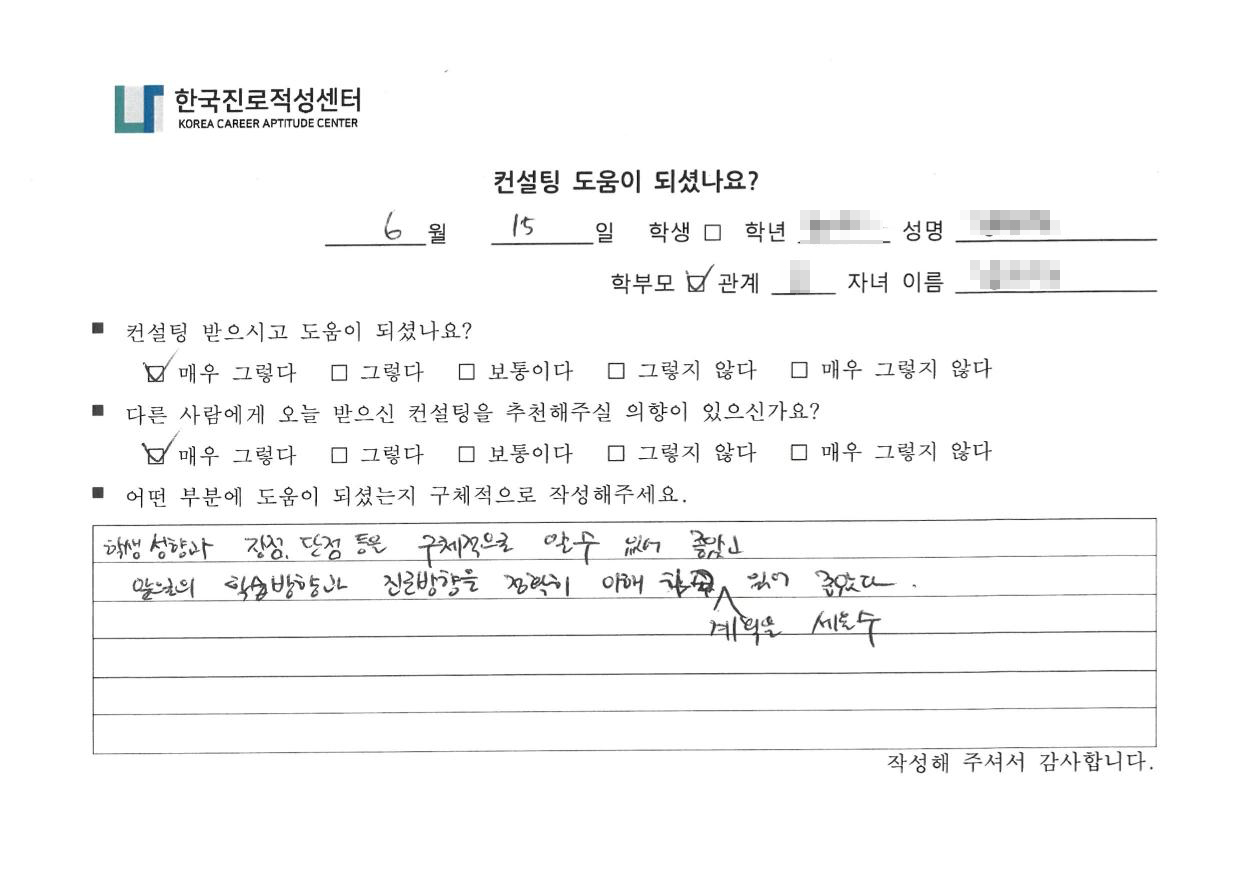 한국진로적성센터
KOREA CAREER APTITUDE CENTER
컨설팅 도움이 되셨나요?
6 월 15 일 학생 □ 학년 성명
학부모 ☑ 관계 자녀 이름
■ 컨설팅 받으시고 도움이 되셨나요?
☑ 매우 그렇다 □ 그렇다 □ 보통이다 □ 그렇지 않다 □ 매우 그렇지 않다
■ 다른 사람에게 오늘 받으신 컨설팅을 추천해주실 의향이 있으신가요?
☑ 매우 그렇다 □ 그렇다 □ 보통이다 □ 그렇지 않다 □ 매우 그렇지 않다
■ 어떤 부분에 도움이 되셨는지 구체적으로 작성해주세요.
학생 성향과 장점, 단점 등을 구체적으로 알수 있어 좋았고
앞으로의 학습방향과 진로방향을 정확히 이해 있어 좋았다.
계획을 세울수
작성해 주셔서 감사합니다.